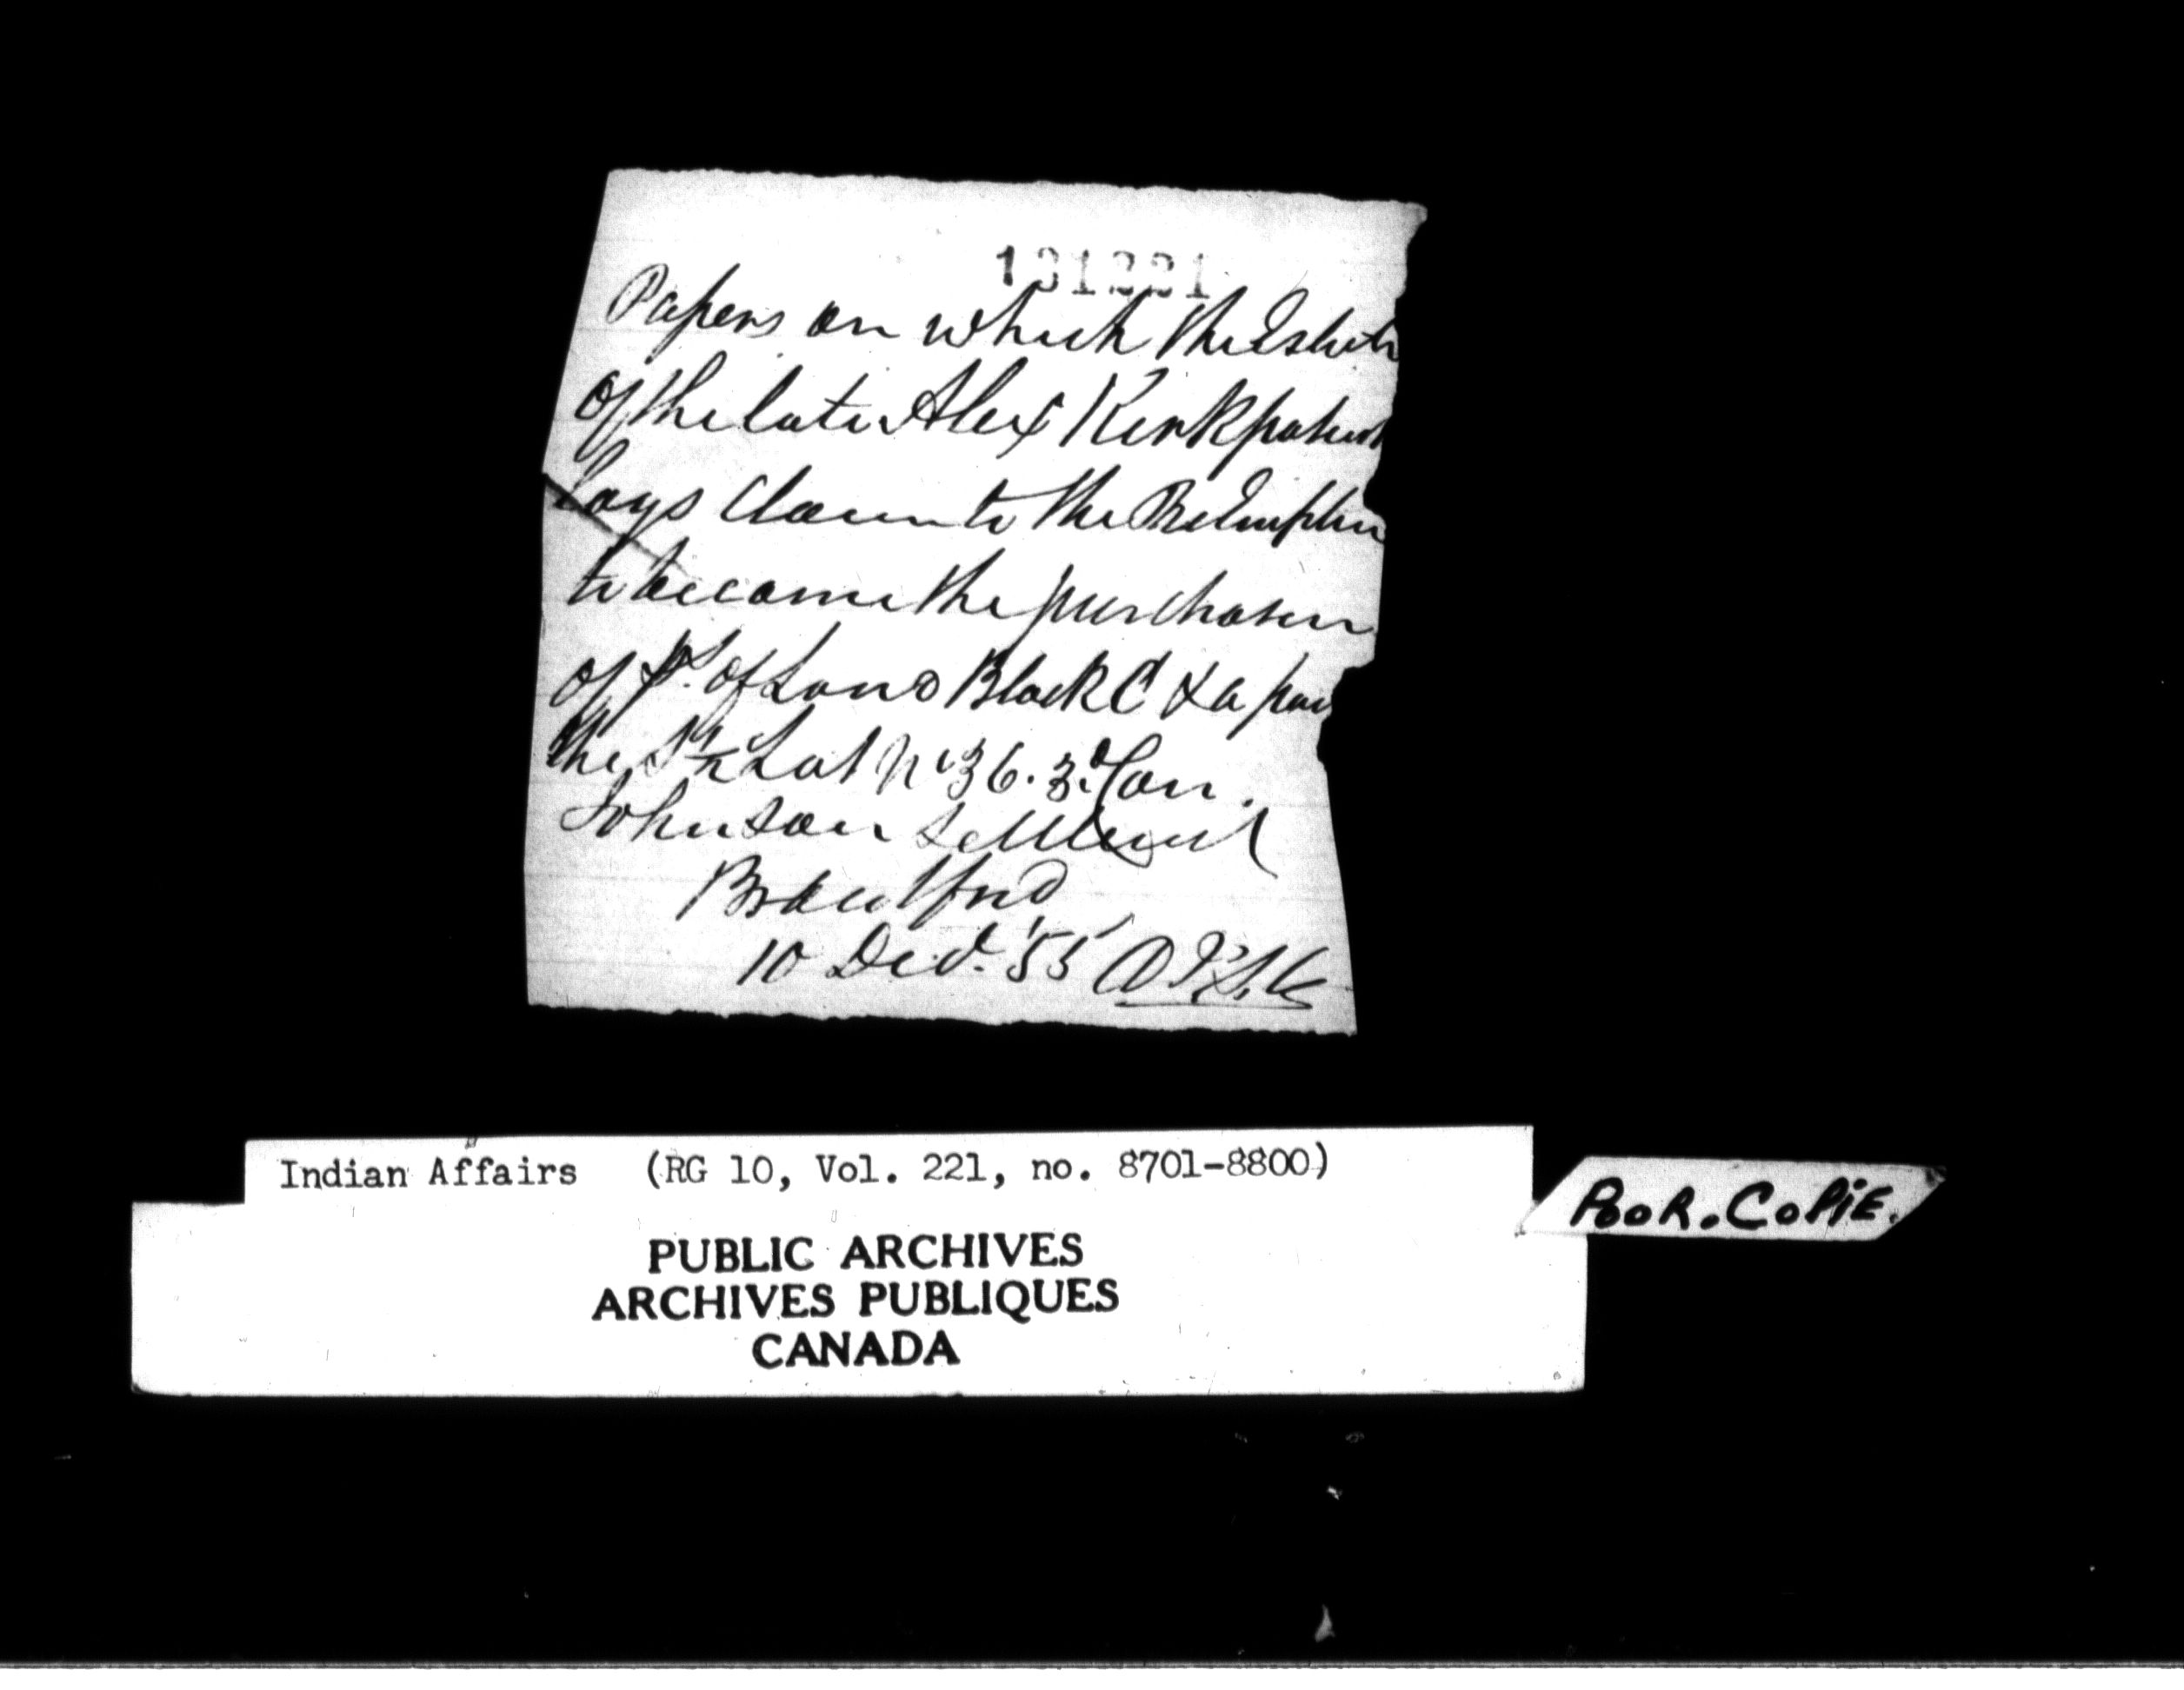 131221
Papers on which the Estate
of the late Alex Kirkpatrick
lays claim to the
to become the purchaser
of pt. of Land Block C & a par
the S 1/2 Lot No 36. 3d Con.
Johnson Settlement
Brantford
10 Decr. '55
Indian Affairs (RG 10, Vol. 221, no. 8701-8800)
PUBLIC ARCHIVES
ARCHIVES PUBLIQUES
CANADA
POOR. COPiE.